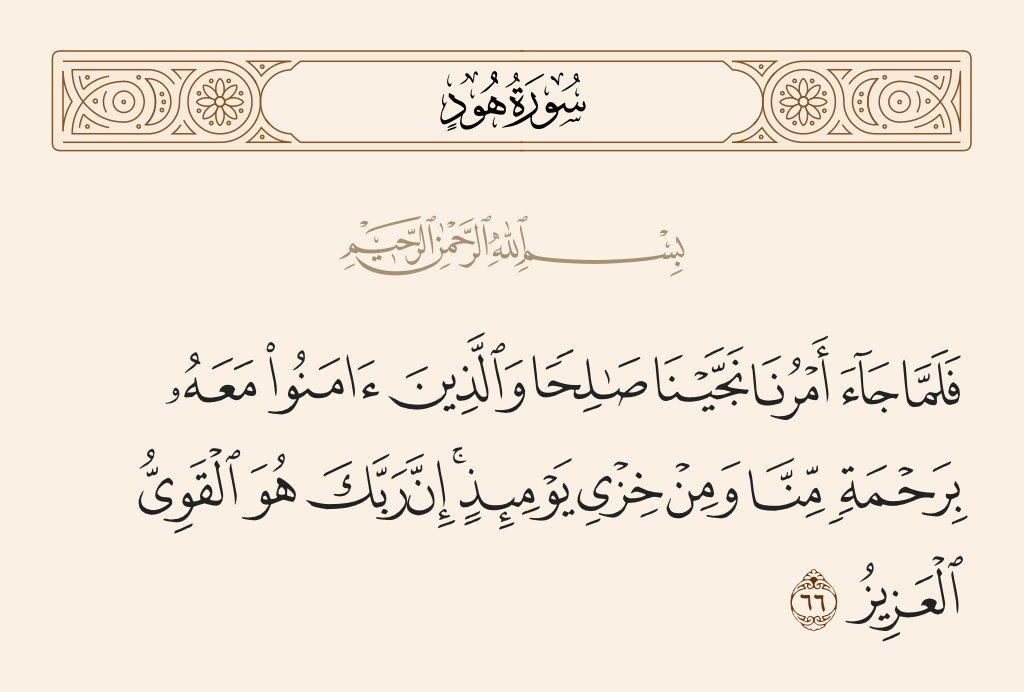 سُورَةُ هُودٍ
بِسْمِ ٱللَّهِ ٱلرَّحْمَٰنِ ٱلرَّحِيمِ
فَلَمَّا جَآءَ أَمْرُنَا نَجَّيْنَا صَـٰلِحًا وَٱلَّذِينَ ءَامَنُوا۟ مَعَهُۥ
بِرَحْمَةٍ مِّنَّا وَمِنْ خِزْىِ يَوْمِئِذٍ ۗ إِنَّ رَبَّكَ هُوَ ٱلْقَوِىُّ
ٱلْعَزِيزُ ٦٦